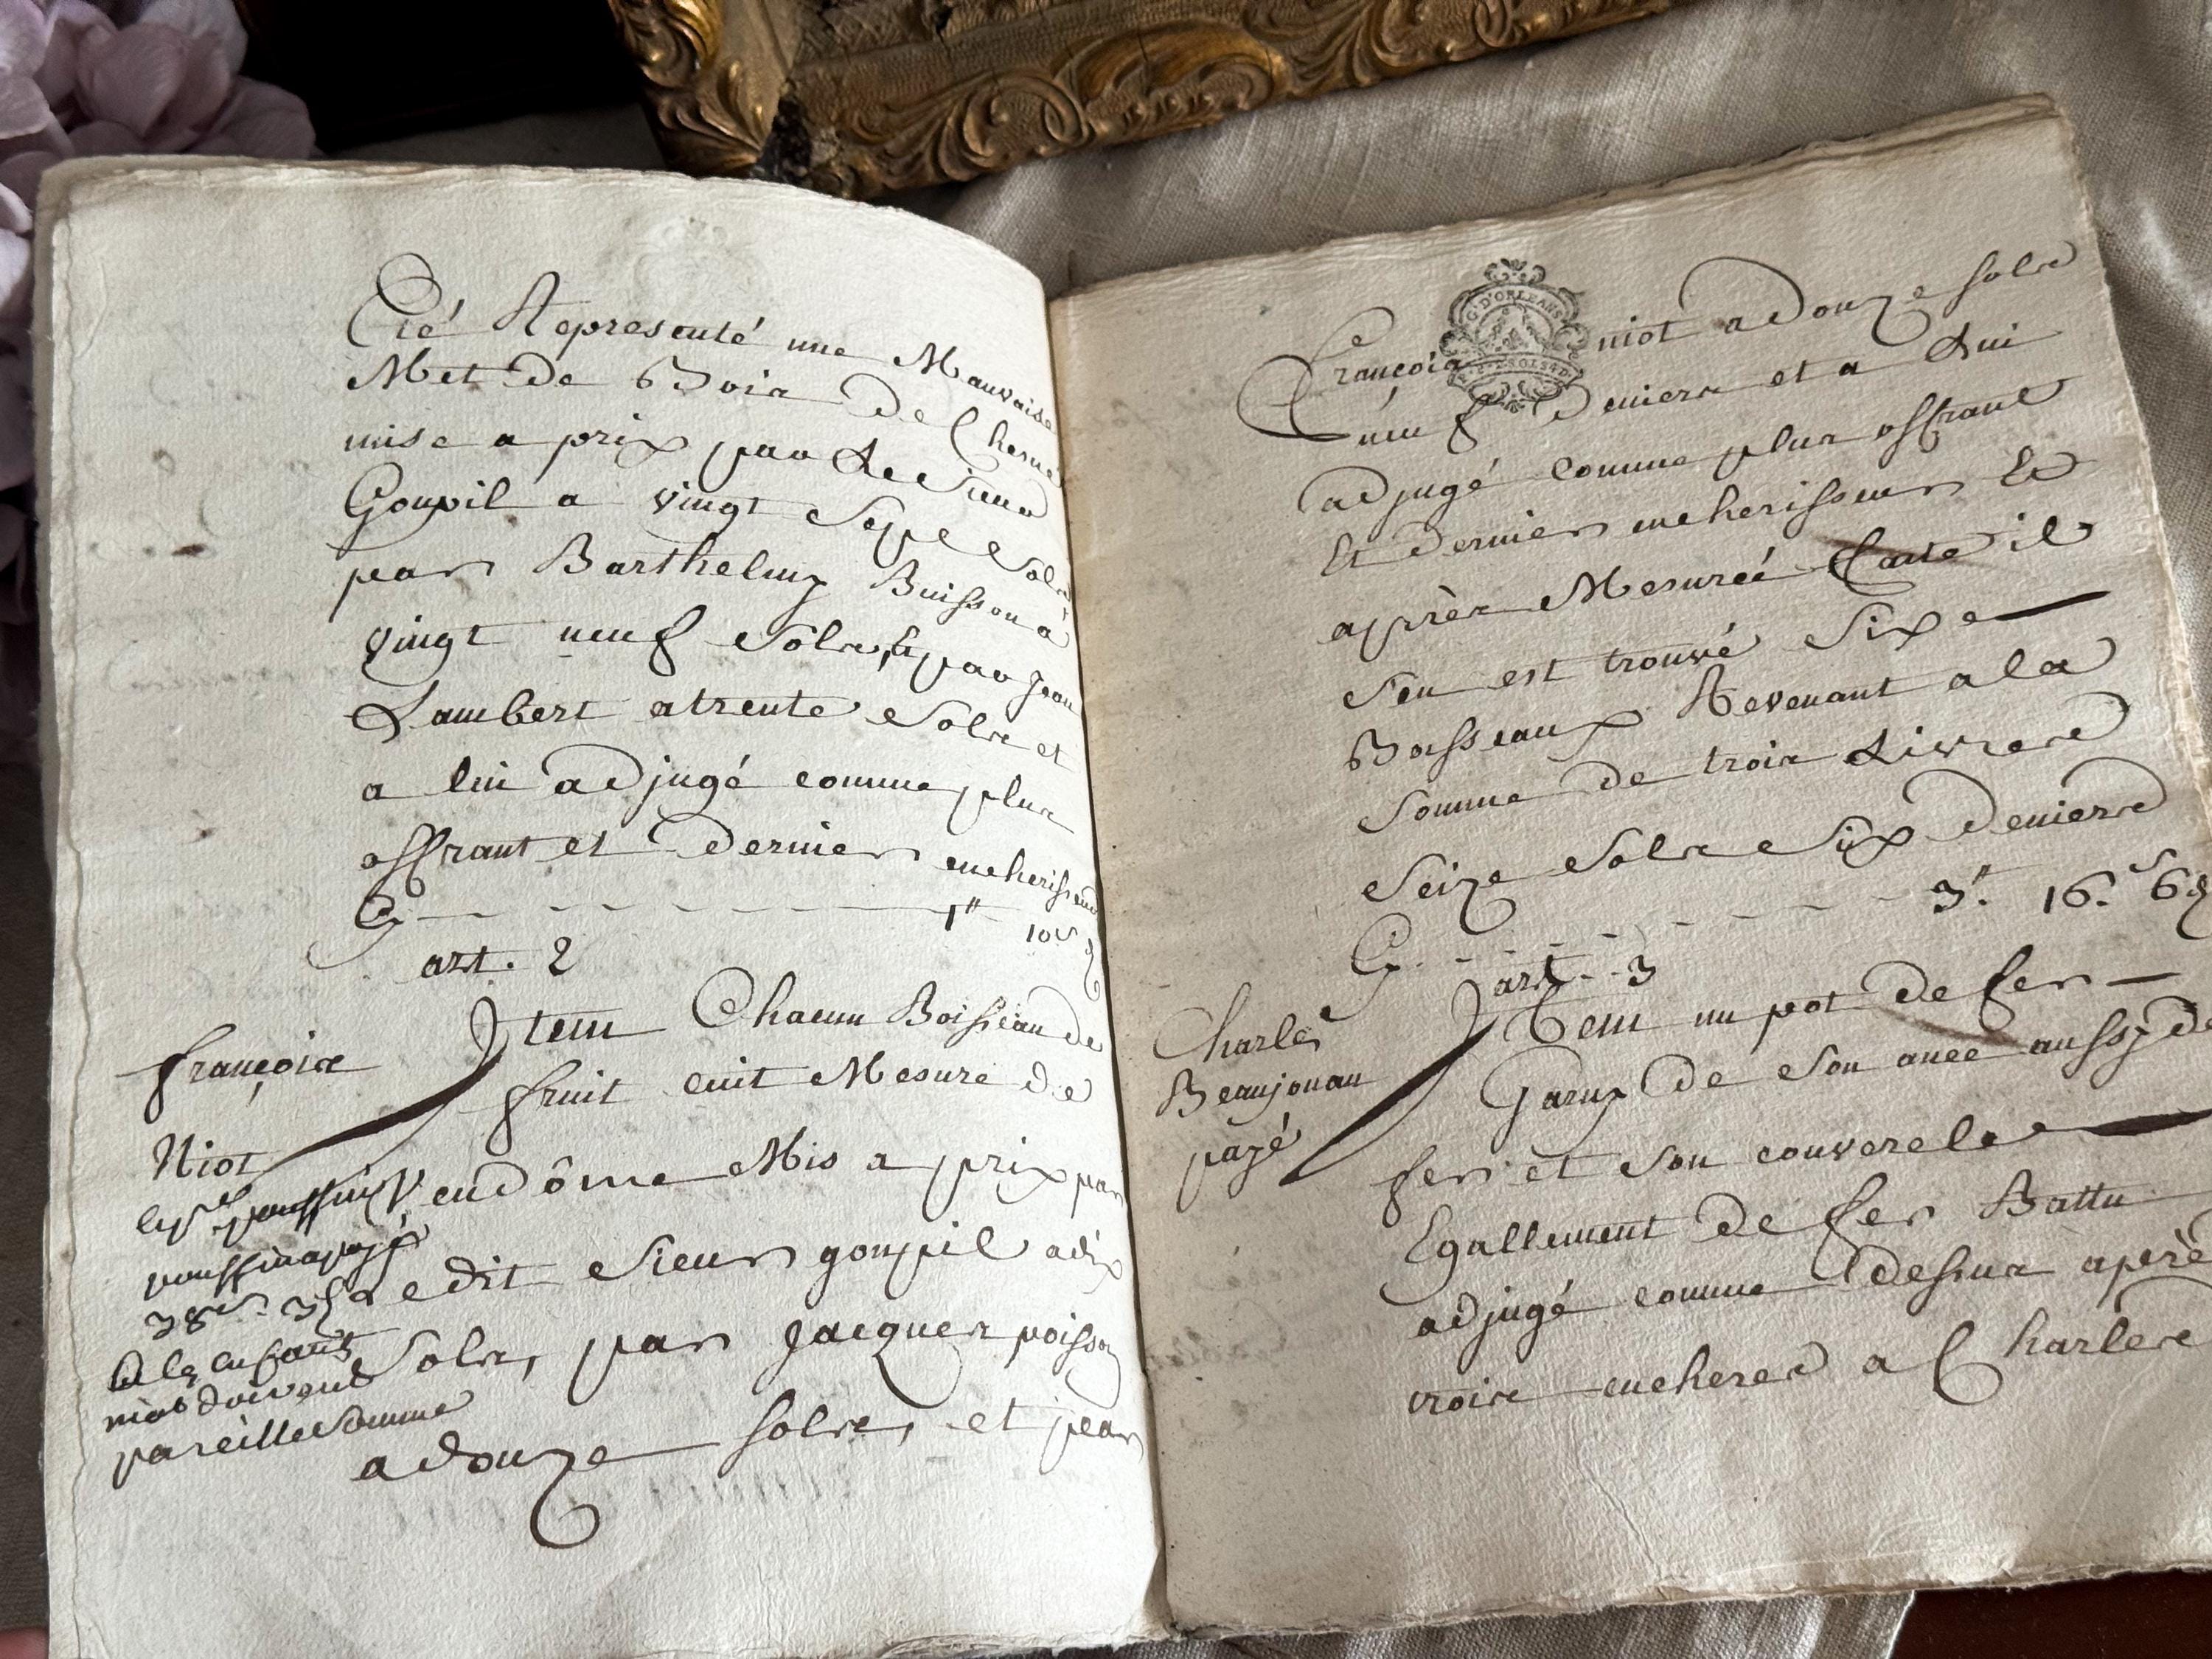 Eté Representé une Mauvaise
Met de Bois de Chesne
mise a prix par Le Sieur
Goupil a vingt Sept Sols
par Barthelmy Buisson a
vingt neuf Sols, et par Jean
Lambert a trente Sols et
a lui adjugé comme plus
offrant et dernier encherisseur
Cy 1ˡᵗ 10ˢ
art. 2
Item Chacun Boisseau de
fruit cuit Mesure de
Vendôme Mis a prix par
Le dit Sieur goupil a dix
Sols, par Jacques poisson
a douze sols, et par
françois
Niot
38ˢ 3ᵈ
les enfants
niot doivent
pareille Somme
François niot a douze sols
neuf deniers et a Lui
adjugé comme plus offrant
Et dernier encherisseur Et
après Mesurée faite il
s'en est trouvé Six
Boisseaux Revenant a la
Somme de trois Livres
Seize Sols Six deniers
Cy 3ˡᵗ 16ˢ 6ᵈ
art. 3
Charles
Beaujouan
payé
Item un pot de fer
Garny de Son ance aussy de
fer et Son couvercle
Egallement de fer Battu
adjugé comme dessus après
trois encheres a Charles
G. D'ORLEANS